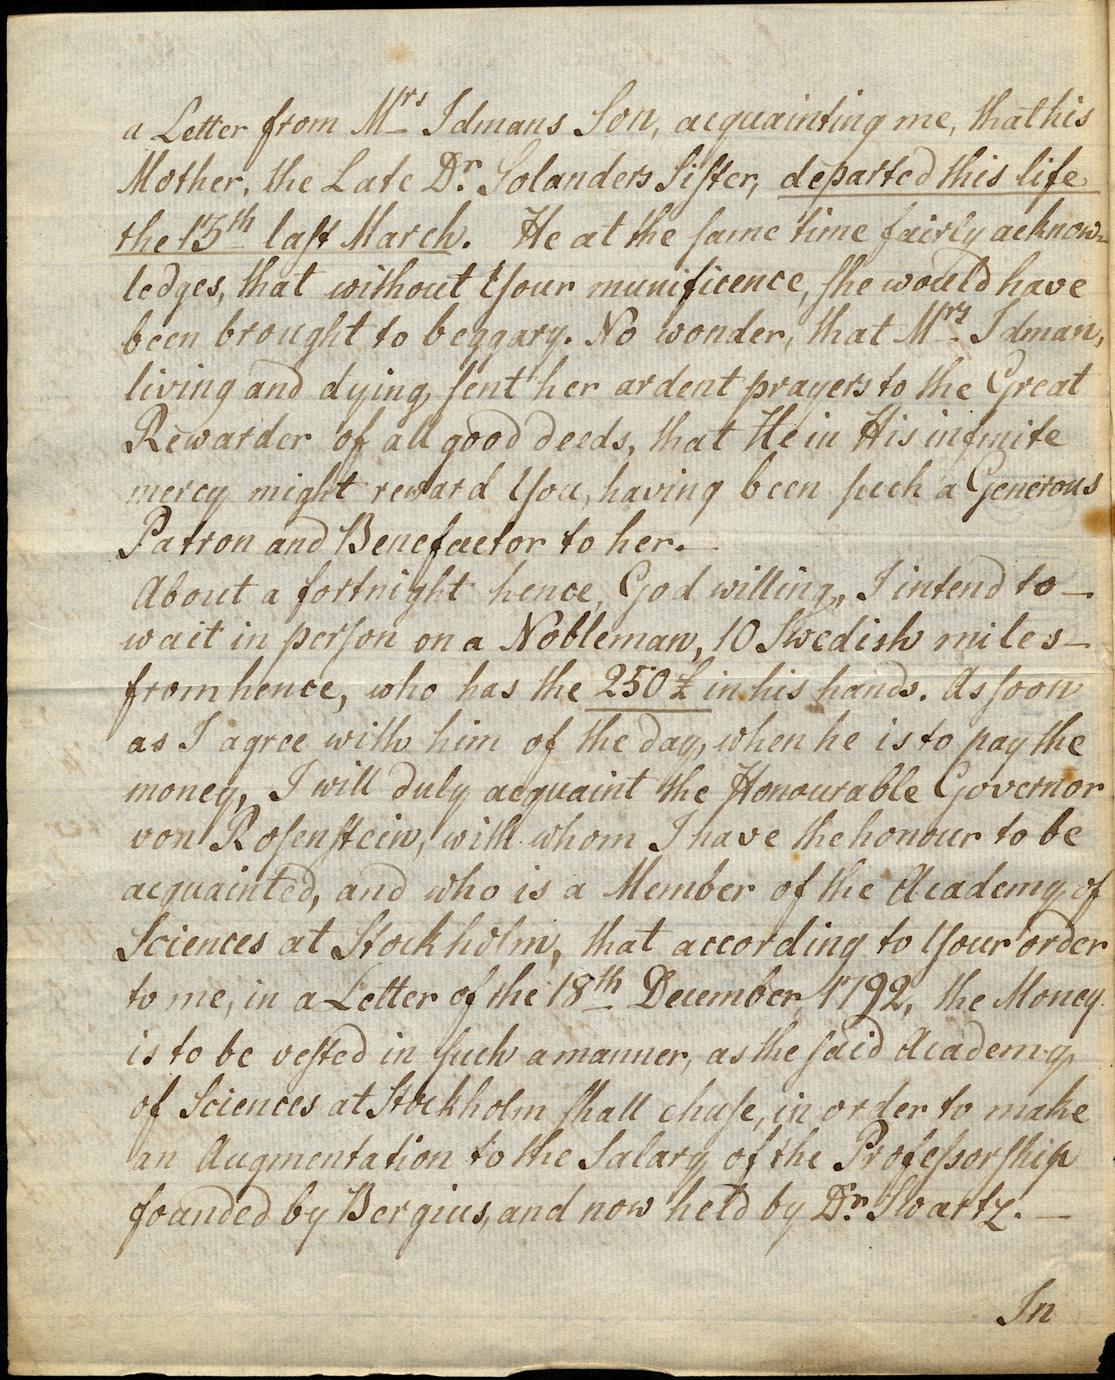 a Letter from Mrs Idmans Son, acquainting me, that his
Mother, the Late Dr. Solanders Sister, departed this life
the 15th last March. He at the same time fairly acknow-
ledges, that without Your munificence, she would have
been brought to beggary. No wonder, that Mrs Idman,
living and dying, sent her ardent prayers to the Great
Rewarder of all good deeds, that He in His infinite
mercy might reward You, having been such a Generous
Patron and Benefactor to her.—
About a fortnight hence, God willing, I intend to —
wait in person on a Nobleman, 10 Swedish miles —
from hence, who has the 250 £ in his hands. As soon
as I agree with him of the day, when he is to pay the
money, I will duly acquaint the Honourable Governor
von Rosenstein, with whom I have the honour to be
acquainted, and who is a Member of the Academy of
Sciences at Stockholm, that according to Your order
to me, in a Letter of the 18th December, 1792, the Money
is to be vested in such a manner, as the said Academy
of Sciences at Stockholm shall chuse, in order to make
an Augmentation to the Salary of the Professorship
founded by Bergius, and now held by Dr. Swartz. —
In